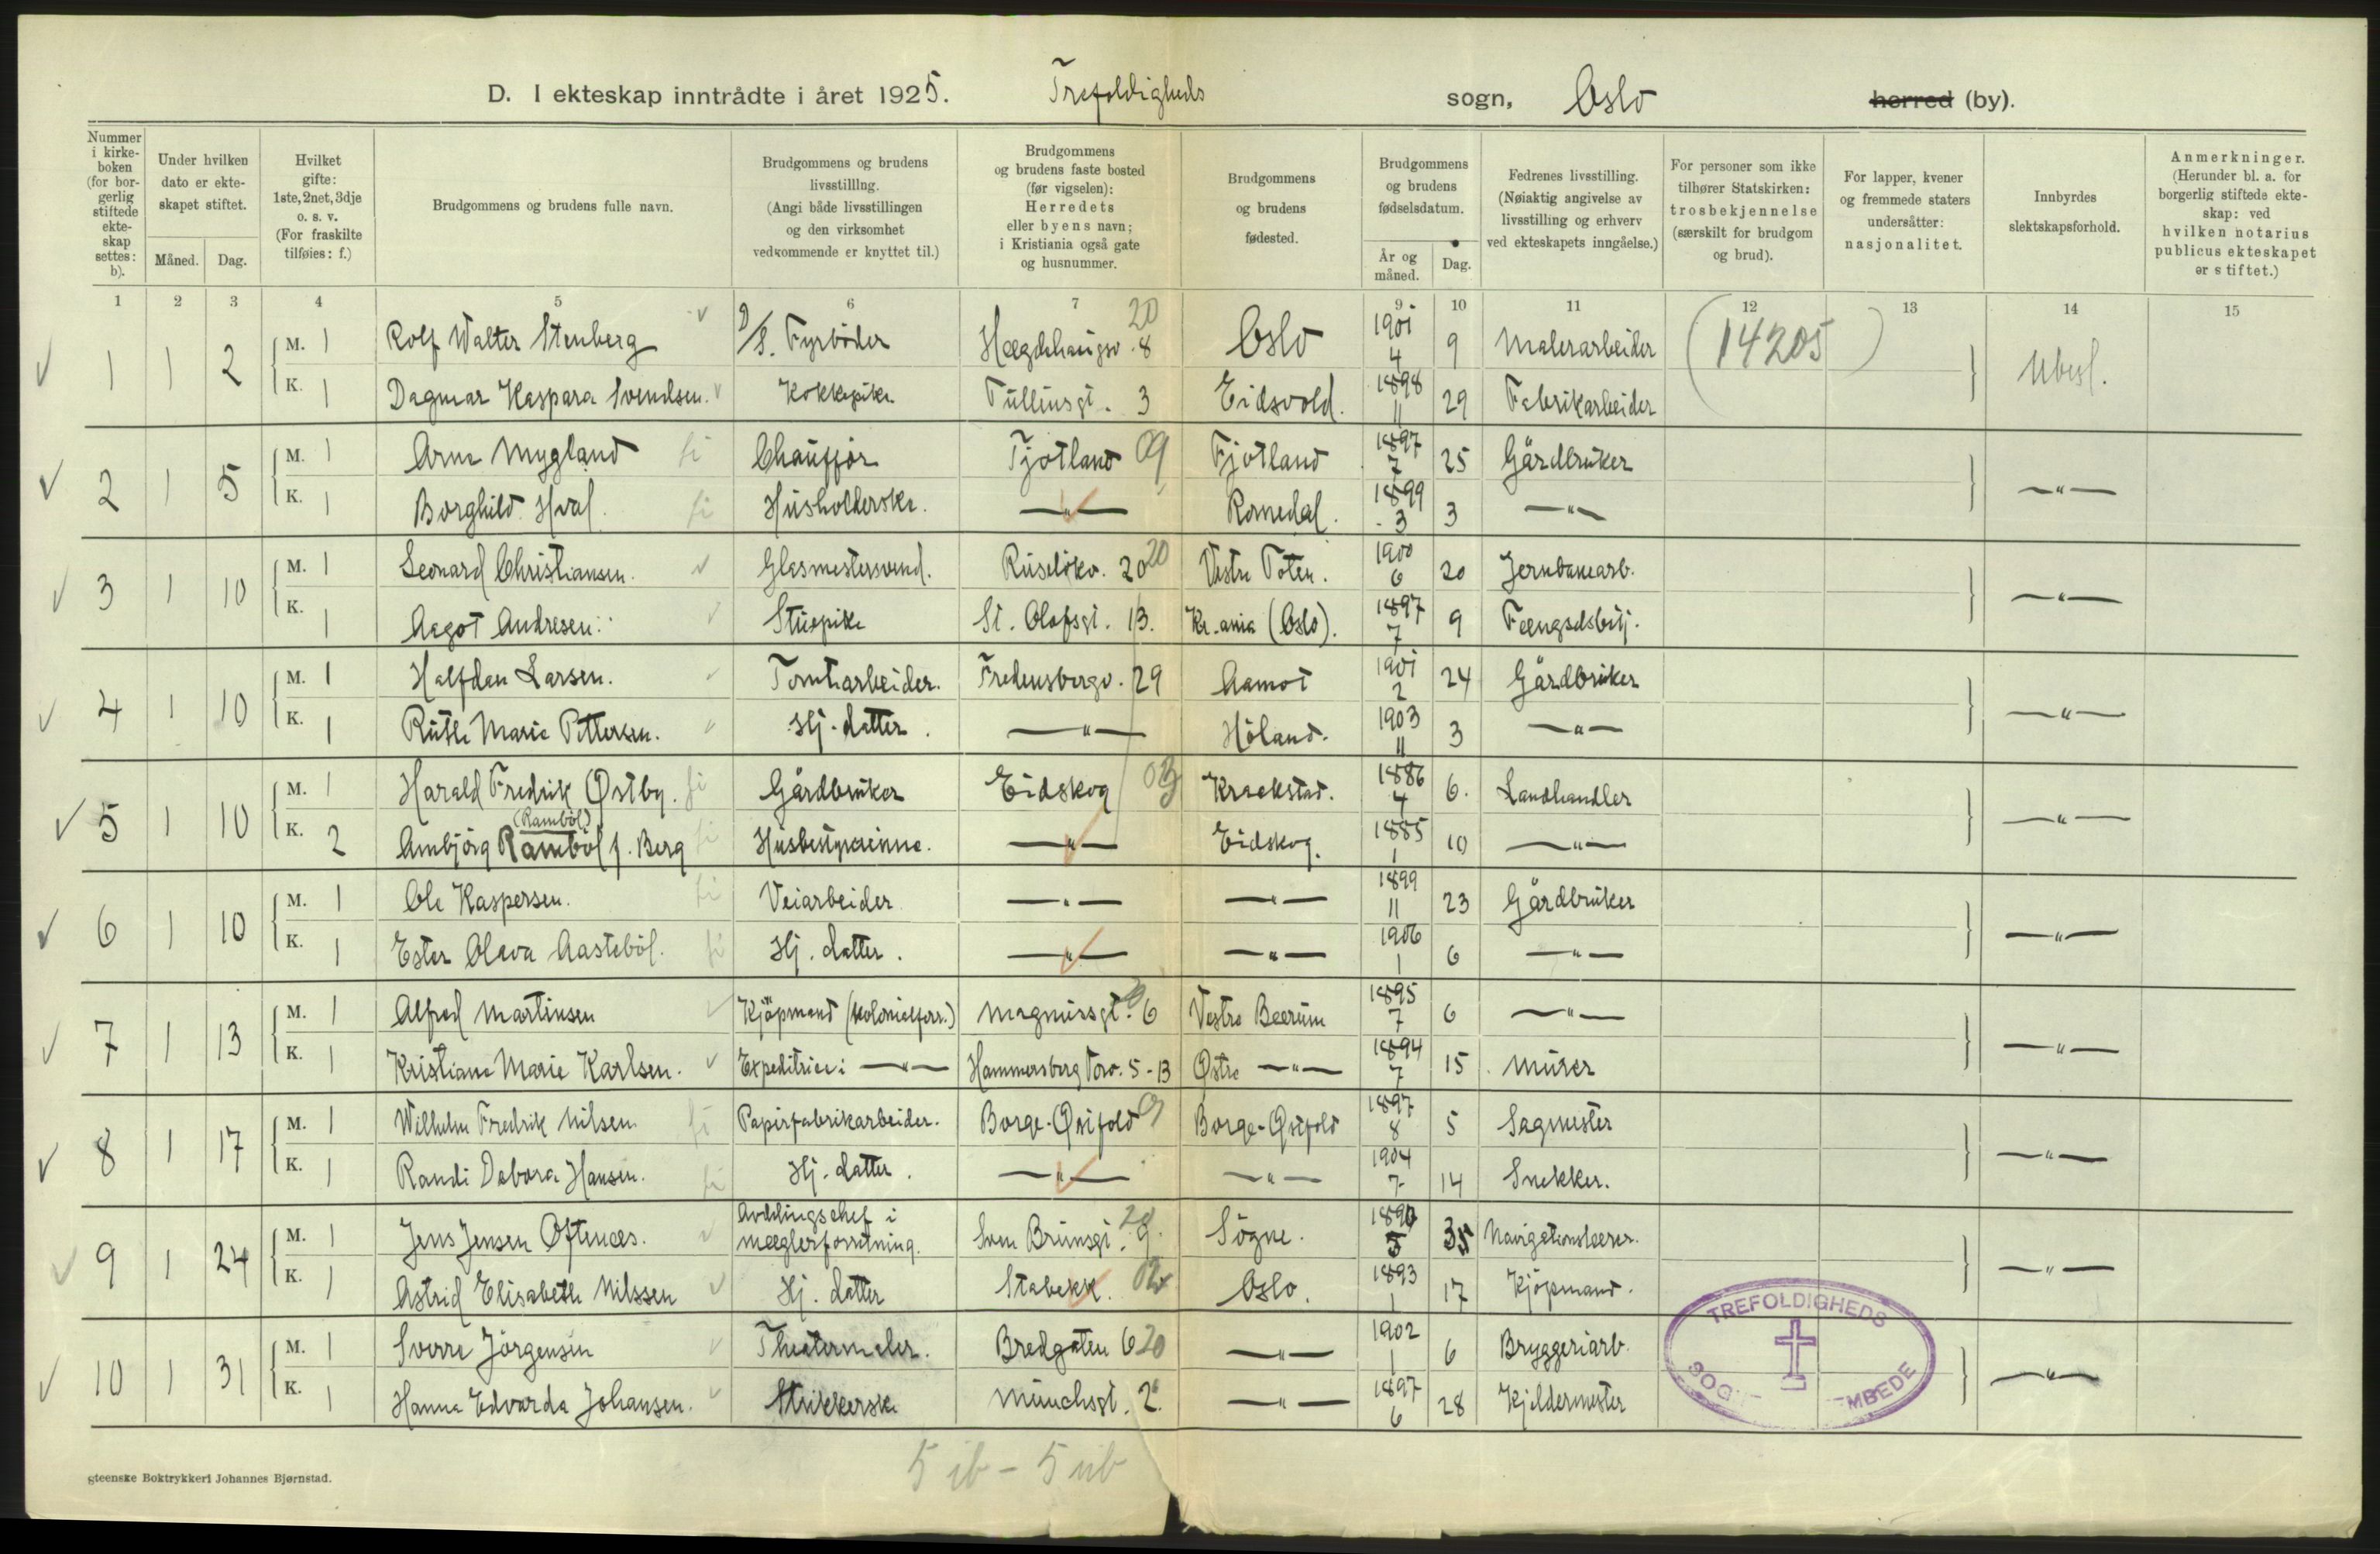 D. I ekteskap inntrådte i året 1925. Trefoldigheds sogn, Oslo herred (by).
Nummer i kirkeboken (for borgerlig stiftede ekteskap settes: b). Under hvilken dato er ekteskapet stiftet. Måned. Dag. Hvilket gifte: 1ste, 2net, 3dje o. s. v. (For fraskilte tilføies: f.) Brudgommens og brudens fulle navn. Brudgommens og brudens livsstilling. (Angi både livsstillingen og den virksomhet vedkommende er knyttet til.) Brudgommens og brudens faste bosted (før vigselen): Herredets eller byens navn; i Kristiania også gate og husnummer. Brudgommens og brudens fødested. Brudgommens og brudens fødselsdatum. År og måned. Dag. Fedrenes livsstilling. (Nøiaktig angivelse av livsstilling og erhverv ved ekteskapets inngåelse.) For personer som ikke tilhører Statskirken: trosbekjennelse (særskilt for brudgom og brud). For lapper, kvener og fremmede staters undersåtter: nasjonalitet. Innbyrdes slektskapsforhold. Anmerkninger. (Herunder bl. a. for borgerlig stiftede ekteskap: ved hvilken notarius publicus ekteskapet er stiftet.)
1 2 3 4 5 6 7 8 9 10 11 12 13 14 15
1 1 2 M. 1 Rolf Walter Stenberg D/S. Fyrbøder Hægdehaugsv. 8 20 Oslo 1901 4 9 Malerarbeider (14205) Ubesl.
K. 1 Dagmar Kaspara Svendsen. Kokkepike Tullinsgt. 3 Eidsvold. 1898 11 29 Fabrikarbeider
2 1 5 M. 1 Arne Mygland fi Chaufför Fjotland 09 Fjotland 1897 7 25 Gårdbruker —"—
K. 1 Borghild Hval. fi Husholderske. —"— Romedal. 1899 3 3 —"—
3 1 10 M. 1 Leonard Christiansen. Glasmestersvend. Ruseløkv. 20 20 Vestre Toten. 1900 6 20 Jernbanearb. —"—
K. 1 Aagot Andresen. Stuepike St. Olafsgt. 13. Kr.ania (Oslo). 1897 7 9 Fængselsbetj.
4 1 10 M. 1 Halfdan Larsen. Tomtearbeider. Fredensborgv. 29 Aamot 1901 2 24 Gårdbruker —"—
K. 1 Ruth Marie Pettersen. Hj. datter. —"— Höland. 1903 11 3 —"—
5 1 10 M. 1 Harald Fredrik Østby. fi Gårdbruker Eidskog Kraakstad. 1886 4 6. Landhandler —"—
(Ramböl)
K. 2 Ambjörg Ramböl f. Berg fi Husbestyrerinne. —"— Eidskog. 1885 1 10 —"—
6 1 10 M. 1 Ole Kaspersen. fi Veiarbeider —"— —"— 1899 11 23 Gårdbruker —"—
K. 1 Ester Olava Aasteböl. fi Hj. datter. —"— —"— 1906 1 6 —"—
7 1 13 M. 1 Alfred Martinsen Kjöpmand (kolonialforr.) Magnusgt. 6 Vestre Baerum 1895 7 6 —"— —"—
K. 1 Kristiane Marie Karlsen. Expeditrice i —"— Hammersborg Torv. 5-13 Østre —"— 1894 7 15 Murer
8 1 17 M. 1 Wilhelm Fredrik Nilsen. fi Papirfabrikarbeider. Borge-Østfold Borge-Østfold 1897 8 5 Sagmester —"—
K. 1 Randi Debora Hansen. fi Hj. datter. —"— —"— 1904 7 14 Snekker.
9 1 24 M. 1 Jens Jensen Oftenæs. Avdelingschef i mæglerforretning. Sven Brunsgt. 9. Sögne. 1890 5 Navigationslærer. —"—
K. 1 Astrid Elisabeth Nilssen Hj. datter Stabekk. Oslo. 1893 1 17 Kjöpmand.
10 1 31 M. 1 Sverre Jörgensen Theatermaler. Bredgaten 6 20 —"— 1902 1 6 Bryggeriarb. —"—
K. 1 Hanna Edvarda Johansen. Strikkerske Munchsgt. 2. —"— 1897 6 28 Kjeldermester
TREFOLDIGHEDS SOG MBEDE
5 ib - 5 ub
gteenske Boktrykkeri Johannes Bjørnstad.